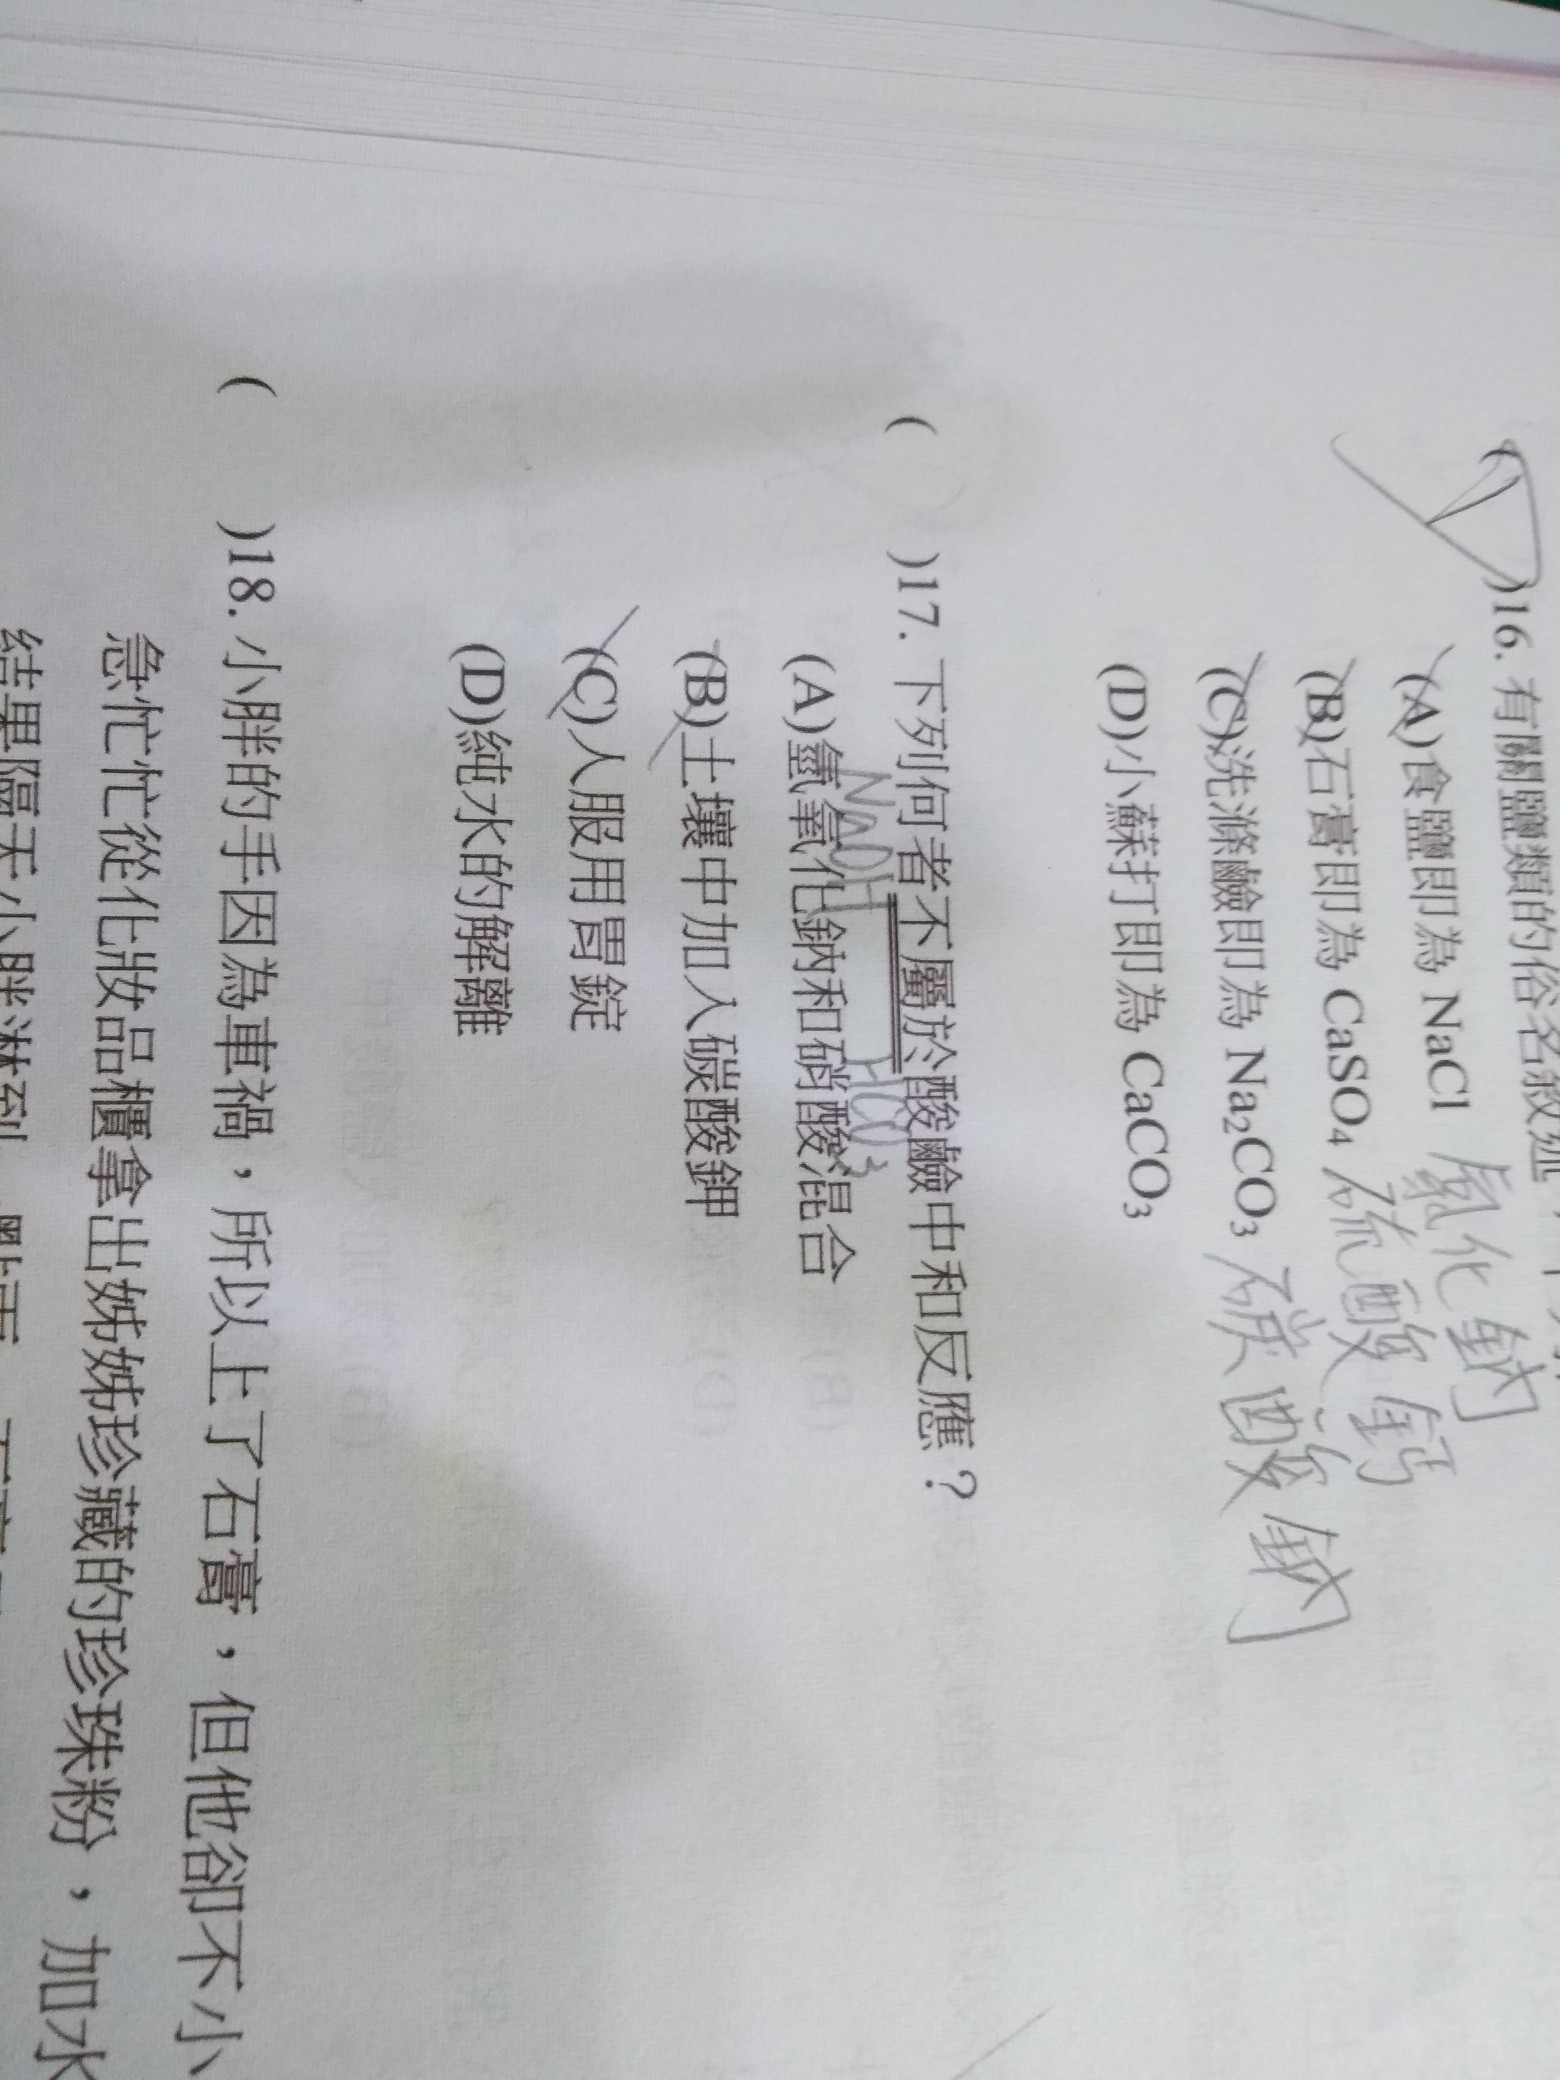 )16. 有關鹽類的俗名敘述，
(A)食鹽即為 NaCl 氯化鈉
(B)石膏即為 CaSO₄ 硫酸鈣
(C)洗滌鹼即為 Na₂CO₃ 碳酸鈉
(D)小蘇打即為 CaCO₃
( )17. 下列何者不屬於酸鹼中和反應？
NaOH HCO₃
(A)氫氧化鈉和硝酸混合
(B)土壤中加入碳酸鉀
(C)人服用胃錠
(D)純水的解離
( )18. 小胖的手因為車禍，所以上了石膏，但他卻不小
急忙忙從化妝品櫃拿出姊姊珍藏的珍珠粉，加水
結果隔天小胖淋到